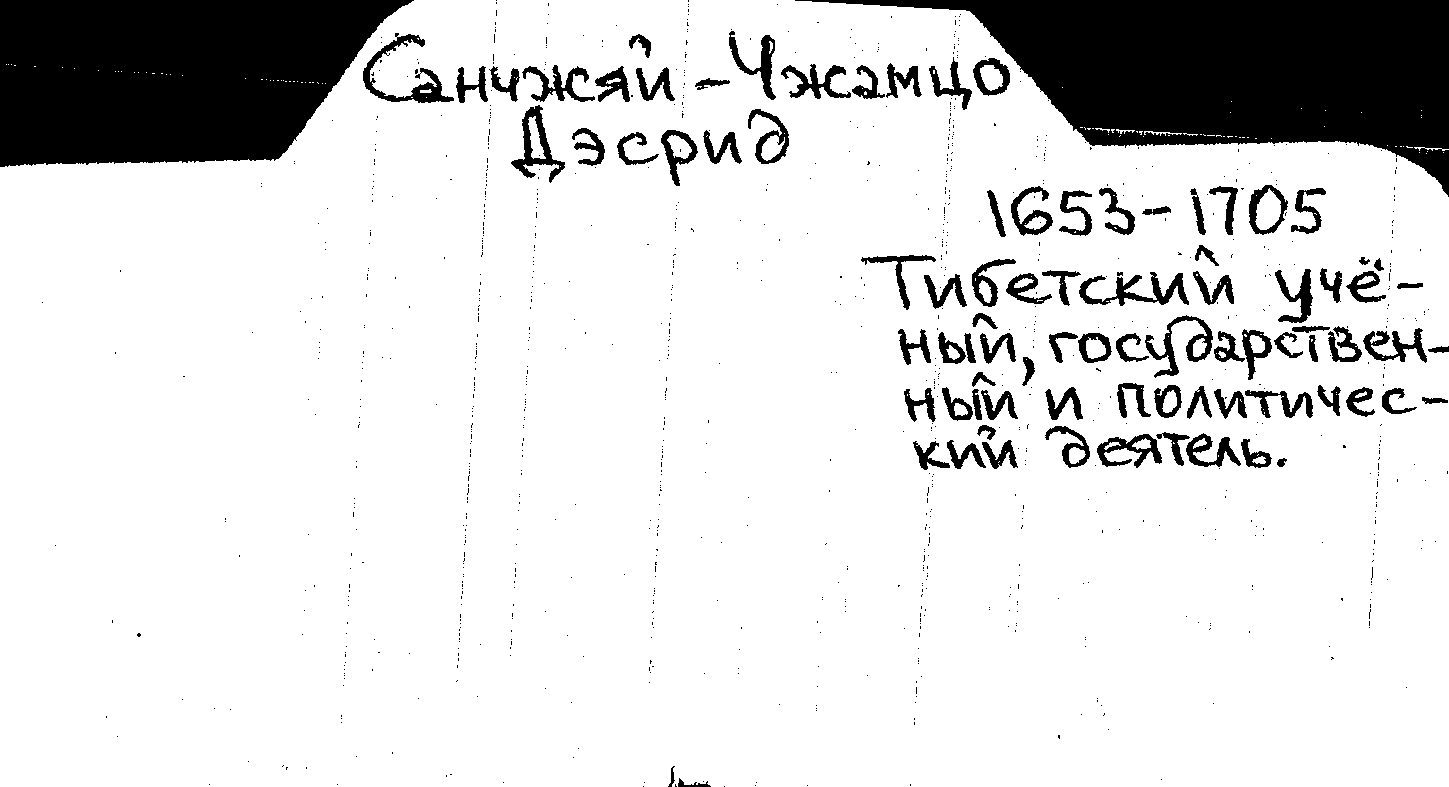 Санчжяй-Чжамцо
Дэсрид
1653-1705
Тибетский учё-
ный, государствен-
ный и политичес-
кий деятель.